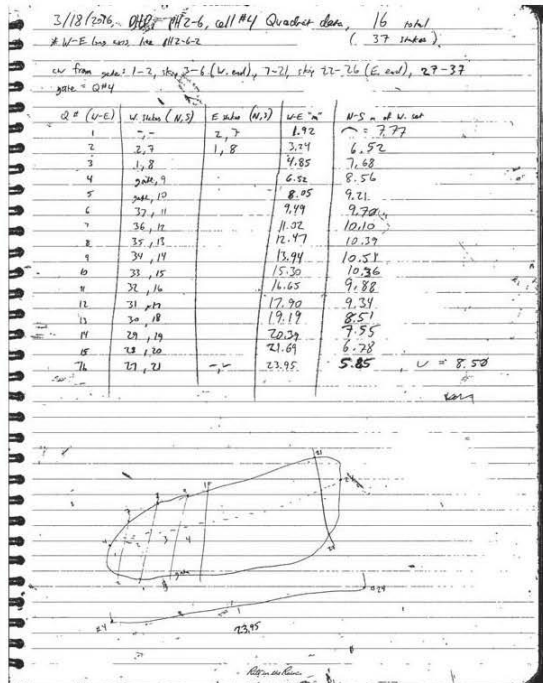 3/18/2016, PH2-6, cell #4 Quadrat data, 16 total
* W-E long axis, line PH2-6-2 (37 stakes)
cw from gate: 1-2, skip 3-6 (W. end), 7-21, skip 22-26 (E. end), 27-37
gate = Q#4
Q # (W-E) W. stakes (N,S) E stakes (N,S) W-E "m" N-S m of W. set
1 -,- 2,7 1.92 = 7.77
2 2,7 1,8 3.24 6.52
3 1,8 4.85 7.68
4 gate, 9 6.52 8.56
5 gate, 10 8.05 9.21
6 37, 11 9.49 9.70
7 36, 12 11.02 10.10
8 35, 13 12.47 10.39
9 34, 14 13.94 10.58
10 33, 15 15.30 10.36
11 32, 16 16.65 9.88
12 31, 17 17.90 9.34
13 30, 18 19.19 8.51
14 29, 19 20.39 7.55
15 28, 20 21.69 6.78
16 27, 21 -,- 23.95 5.85 = 8.50
3 4
gate
#4 #24
23.95
Rite in the Rain